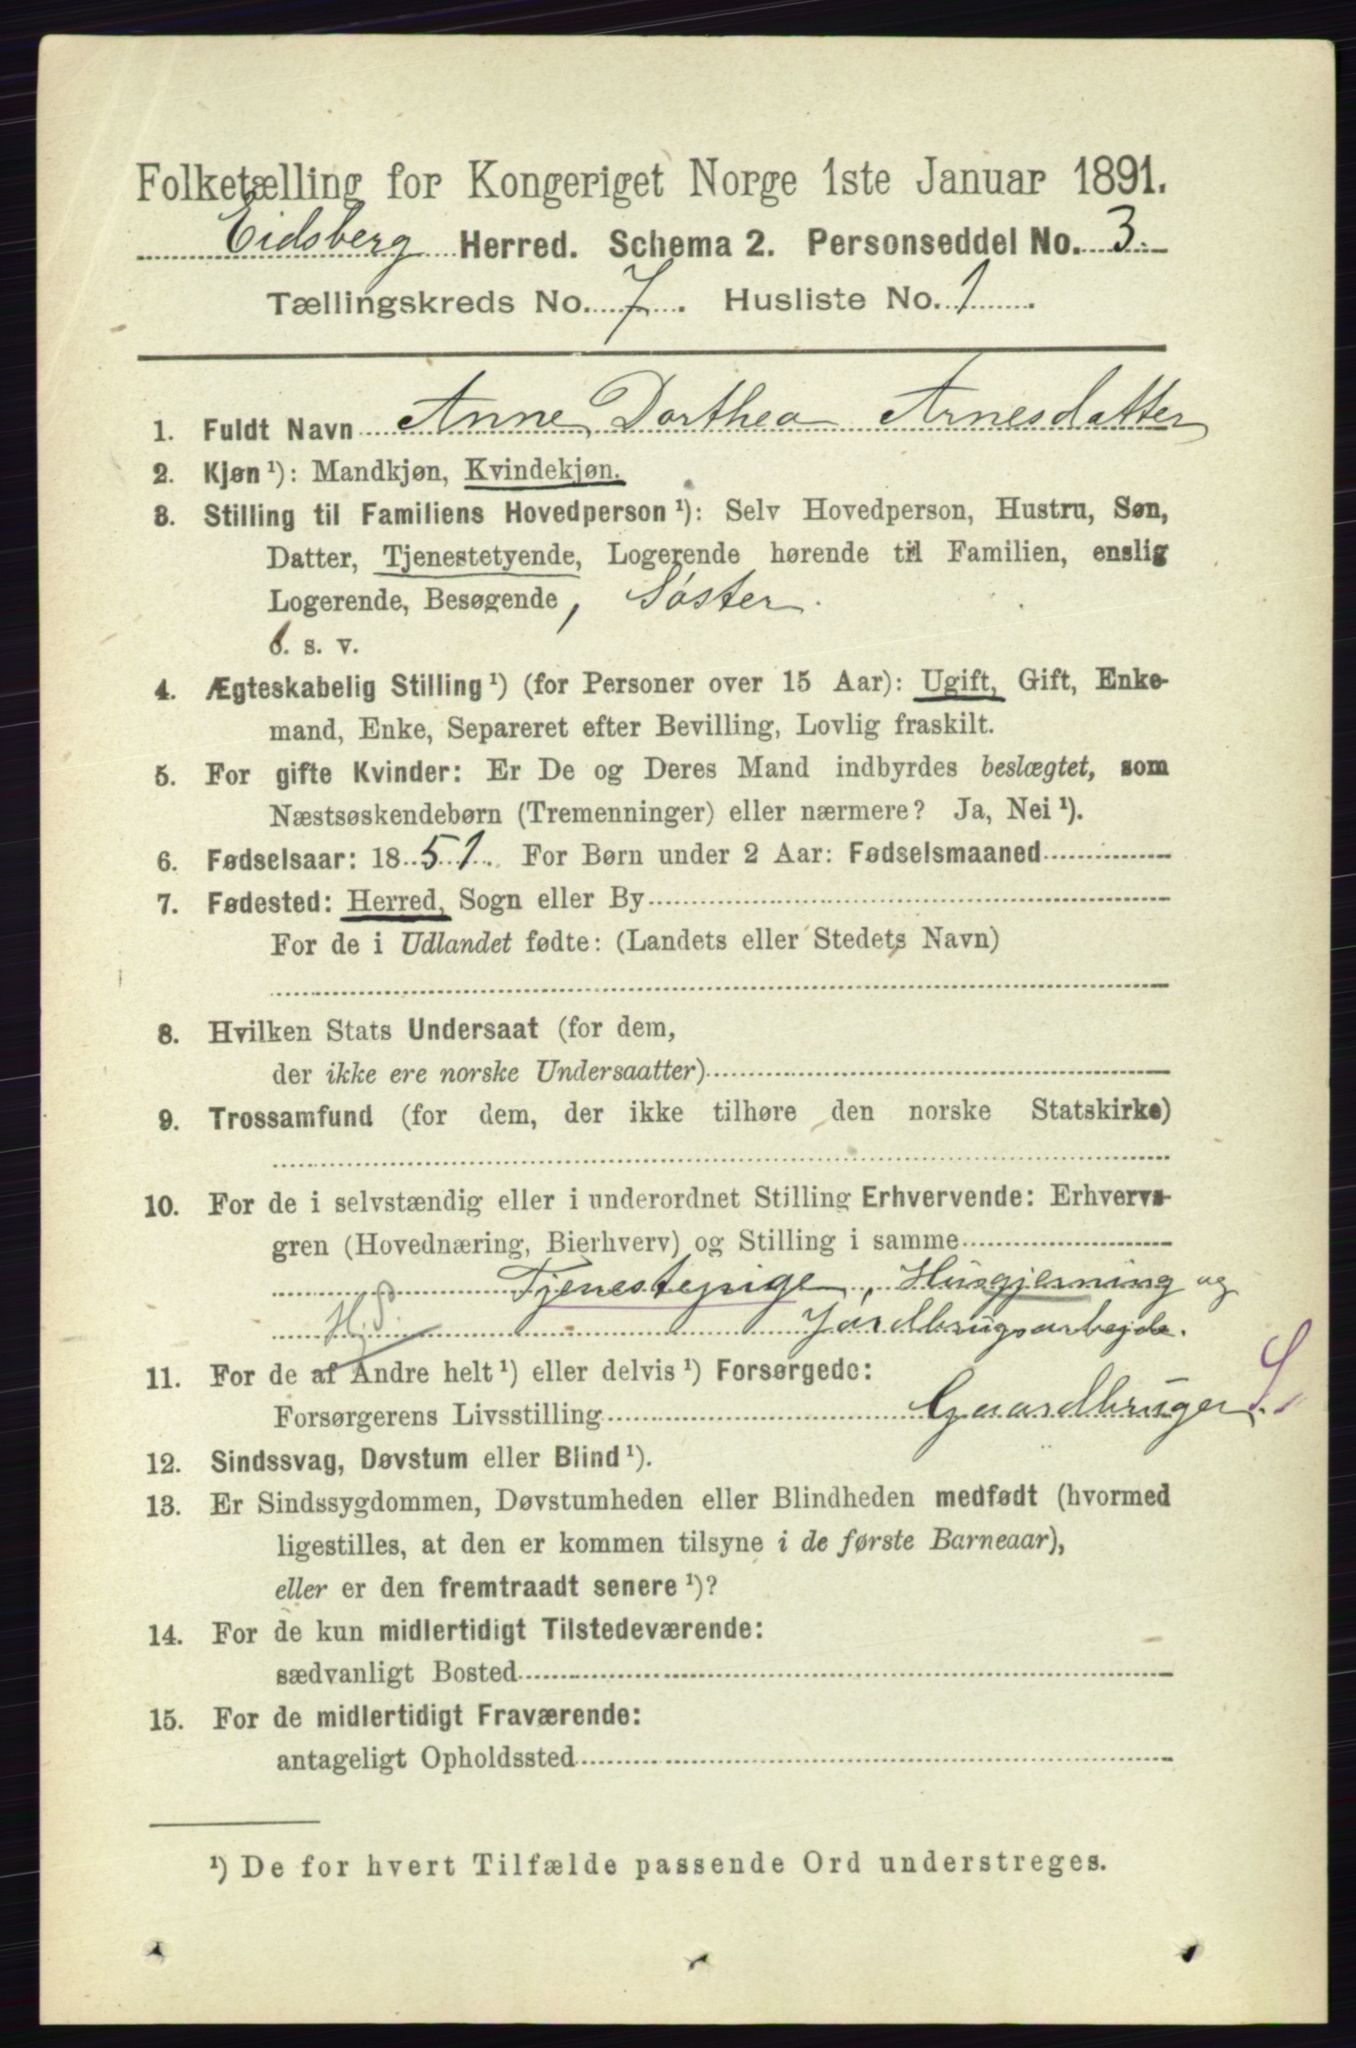 Folketælling for Kongeriget Norge 1ste Januar 1891.
Eidsberg Herred. Schema 2. Personseddel No. 3.
Tællingskreds No. 7. Husliste No. 1.
1. Fuldt Navn Anne Dorthea Arnesdatter
2. Kjøn¹): Mandkjøn, Kvindekjøn.
3. Stilling til Familiens Hovedperson¹): Selv Hovedperson, Hustru, Søn,
Datter, Tjenestetyende, Logerende hørende til Familien, enslig
Logerende, Besøgende, Søster.
o. s. v.
4. Ægteskabelig Stilling¹) (for Personer over 15 Aar): Ugift, Gift, Enke-
mand, Enke, Separeret efter Bevilling, Lovlig fraskilt.
5. For gifte Kvinder: Er De og Deres Mand indbyrdes beslægtet, som
Næstsøskendebørn (Tremenninger) eller nærmere? Ja, Nei¹).
6. Fødselsaar: 1851. For Børn under 2 Aar: Fødselsmaaned
7. Fødested: Herred, Sogn eller By
For de i Udlandet fødte: (Landets eller Stedets Navn)
8. Hvilken Stats Undersaat (for dem,
der ikke ere norske Undersaatter)
9. Trossamfund (for dem, der ikke tilhøre den norske Statskirke)
10. For de i selvstændig eller i underordnet Stilling Erhvervende: Erhvervs-
gren (Hovednæring, Bierhverv) og Stilling i samme
Tjenestepige, Husgjerning og
Jordbrugsarbejde.
11. For de af Andre helt¹) eller delvis¹) Forsørgede:
Forsørgerens Livsstilling Gaardbruger.
12. Sindssvag, Døvstum eller Blind¹).
13. Er Sindssygdommen, Døvstumheden eller Blindheden medfødt (hvormed
ligestilles, at den er kommen tilsyne i de første Barneaar),
eller er den fremtraadt senere¹)?
14. For de kun midlertidigt Tilstedeværende:
sædvanligt Bosted
15. For de midlertidigt Fraværende:
antageligt Opholdssted
¹) De for hvert Tilfælde passende Ord understreges.